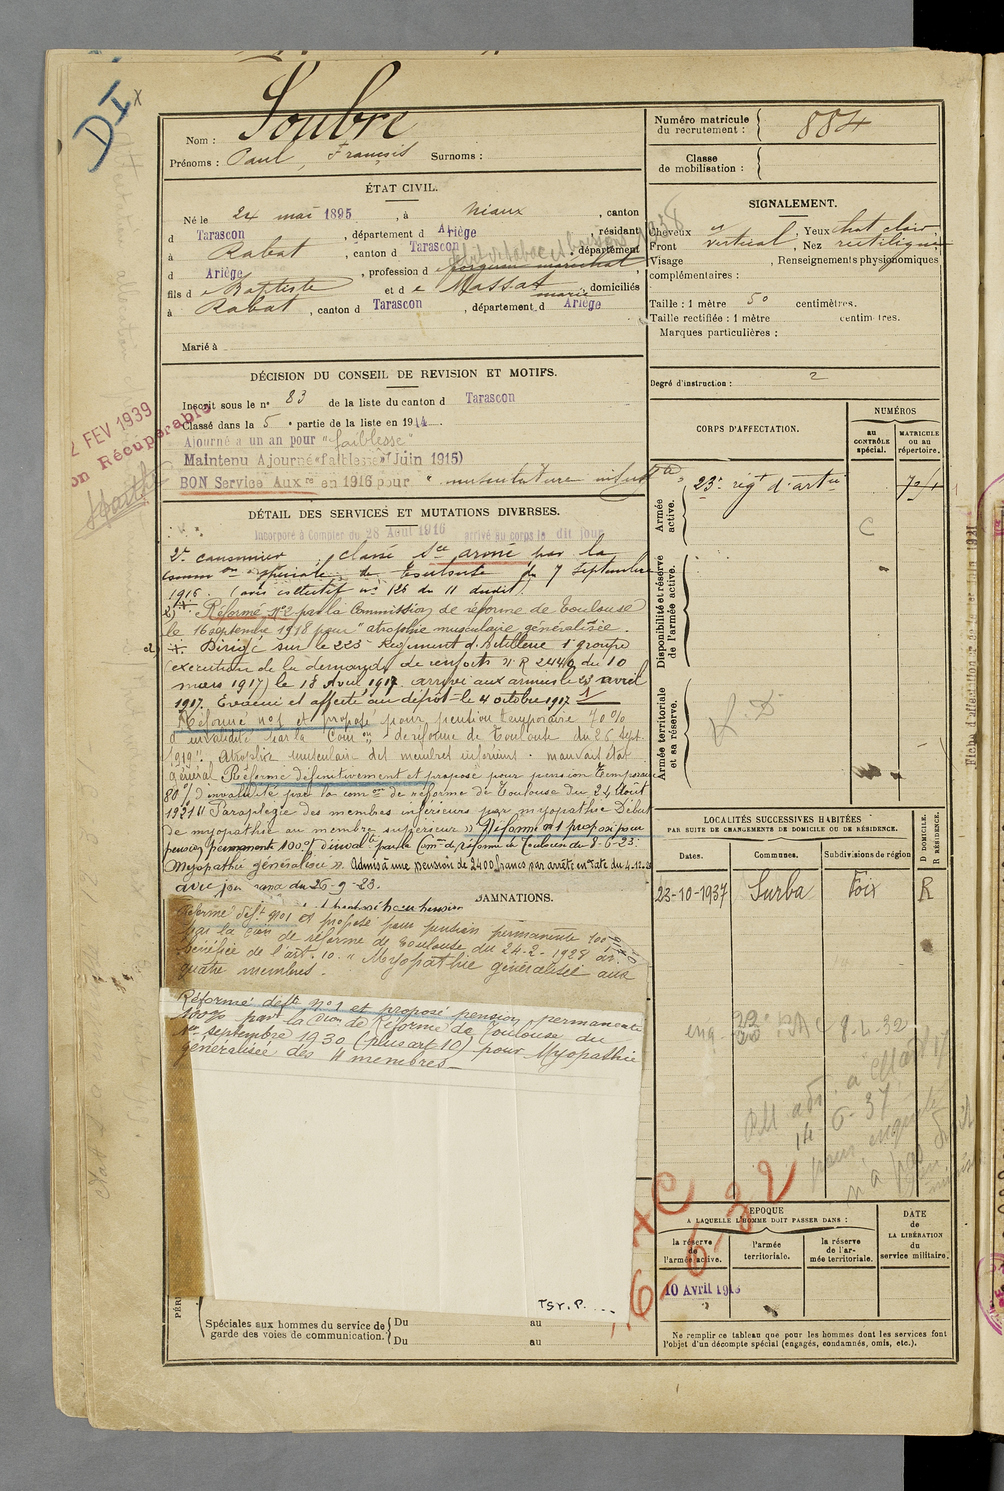 DI
x
Nom : Soubre
Prénoms : Paul, François Surnoms :
ÉTAT CIVIL.
Né le 24 mai 1895, à Niaux, canton
d Tarascon, département d Ariège, résidant
à Rabat, canton d Tarascon, département
d Ariège, profession d forgeron maréchal
fils d e Baptiste et d e Massat marie, domiciliés
à Rabat, canton d Tarascon, département d Ariège
Marié à
DÉCISION DU CONSEIL DE REVISION ET MOTIFS.
Inscrit sous le nº 83 de la liste du canton d Tarascon
Classé dans la 5 e partie de la liste en 1914.
Ajourné a un an pour "faiblesse"
Maintenu Ajourné "faiblesse" (Juin 1915)
BON Service Aux re en 1916 pour " musculature insuf te "
2 FEV 1939
on Récupérable
DÉTAIL DES SERVICES ET MUTATIONS DIVERSES.
Incorporé à compter du 28 Août 1916 arrivé au corps le dit jour
2e canonnier classé sce armé par la
comm on spéciale de Toulouse du 7 Septembre
1916. (avis collectif nº 126 du 11 dudit)
2) Réformé Nº 2 par la Commission de réforme de Toulouse
le 16 septembre 1918 pour "atrophie musculaire généralisée.
Dirigé sur le 225 Régiment d'Artillerie 1 groupe
(exécution de la demande de renforts nº R 2449 du 10
mars 1917) le 18 Avril 1917 arrivé aux armées le 23 avril
1917. Evacué et affecté au dépôt le 4 octobre 1917
Réformé nº 1 et proposé pour pension temporaire 70%
d'invalidité par la Com on de réforme de Toulouse du 26 Sept.
1919 "Atrophie musculaire des membres inférieurs mauvais état
général Réformé définitivement et proposé pour pension Temporaire
80% d'invalidité par la com on de réforme de Toulouse du 24 Août
1921 "Paraplégie des membres inférieurs par myopathie Début
de myopathie au membre supérieur" Réformé nº 1 proposé pour
pension permanent 100% d'inval té par la Com on de réforme de Toulouse du 8-6-23.
Myopathie généralisée". Admis à une pension de 2400 francs par arrêté en date du 4-12-23
avec jouissance du 26-9-23.
DAMNATIONS.
Réformé déf t nº 1 et proposé pour pension permanente 100%
par la Con de réforme de Toulouse du 24-2-1928 av.
bénéfice de l'art. 10. "Myopathie généralisée aux
quatre membres.
Réformé deft nº 1 et proposé pension permanente
100% par la Con de Réforme de Toulouse du
1er septembre 1930 (plus art 10) pour Myopathie
généralisée des 4 membres.
TSY.P. ...
PÉRI
Spéciales aux hommes du service de
garde des voies de communication.
Du au
Du au
Numéro matricule
du recrutement : 884
Classe
de mobilisation :
SIGNALEMENT.
Cheveux Yeux chat clair
Front vertical, Nez rectiligne
Visage, Renseignements physionomiques
complémentaires :
Taille : 1 mètre 50 centimètres.
Taille rectifiée : 1 mètre centimètres.
Marques particulières :
Degré d'instruction : 2
CORPS D'AFFECTATION.
NUMÉROS
au CONTRÔLE spécial.
MATRICULE ou au répertoire.
Armée active.
23e rég t d'art ie
C
Disponibilité et réserve de l'armée active.
Armée territoriale et sa réserve.
LOCALITÉS SUCCESSIVES HABITÉES
PAR SUITE DE CHANGEMENTS DE DOMICILE OU DE RÉSIDENCE.
D DOMICILE.
R RÉSIDENCE.
Dates.
Communes.
Subdivisions de région
23-10-1937 Surba Foix R
8-4-32
14-6-37
16-6-32
ÉPOQUE
A LAQUELLE L'HOMME DOIT PASSER DANS :
la réserve de l'armée active.
l'armée territoriale.
la réserve de l'armée territoriale.
DATE de LA LIBÉRATION du service militaire.
10 Avril 1918
Ne remplir ce tableau que pour les hommes dont les services font
l'objet d'un décompte spécial (engagés, condamnés, omis, etc.).